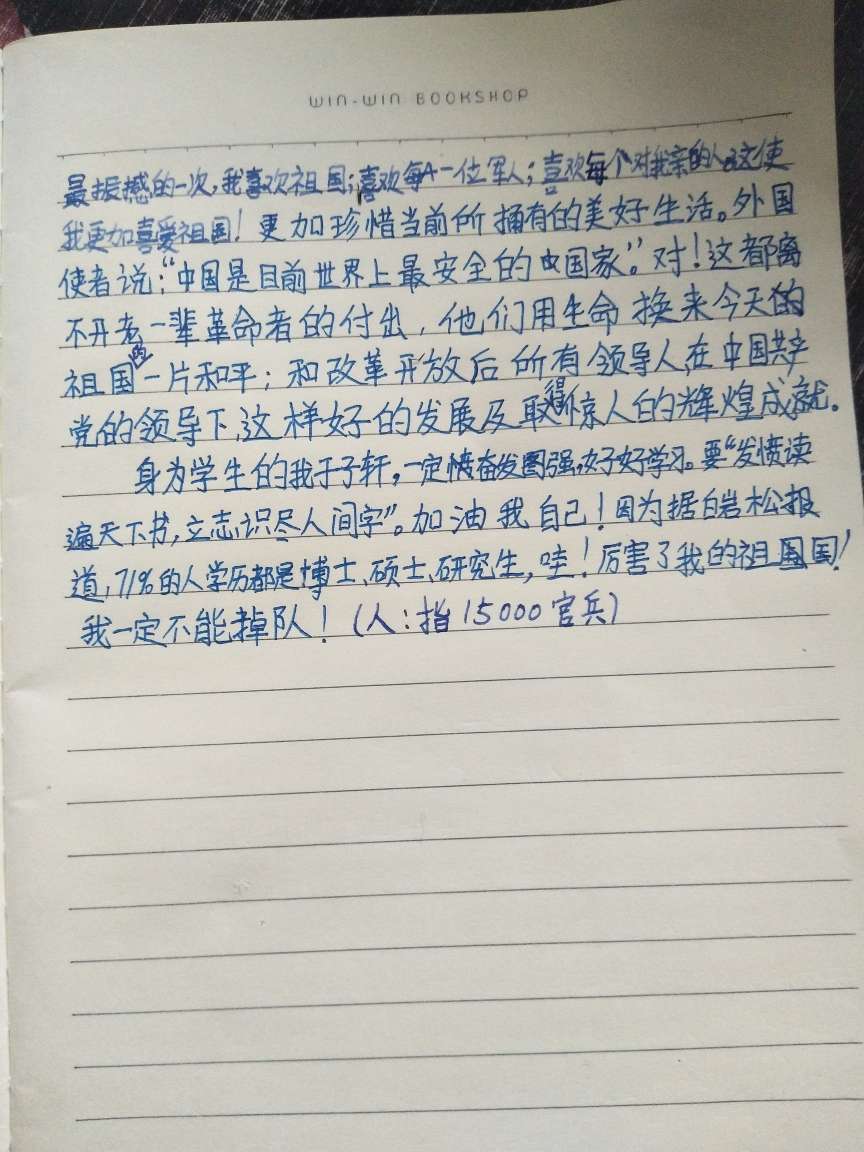 WIN-WIN BOOKSHOP
最振撼的一次，我喜欢祖国；喜欢每一位军人；喜欢每个对我亲的人。这使
我更加喜爱祖国！更加珍惜当前所拥有的美好生活。外国
使者说：“中国是目前世界上最安全的国家”。对！这都离
不开老一辈革命者的付出，他们用生命换来今天的
祖国的一片和平；和改革开放后所有领导人在中国共产
党的领导下，这样好的发展及取得惊人的辉煌成就。
身为学生的我于子轩，一定愤奋发图强，好好学习。要“发愤读
遍天下书，立志识尽人间字”。加油我自己！因为据白岩松报
道，71%的人学历都是博士、硕士、研究生，哇！厉害了我的祖国！
我一定不能掉队！（人：指15000官兵）